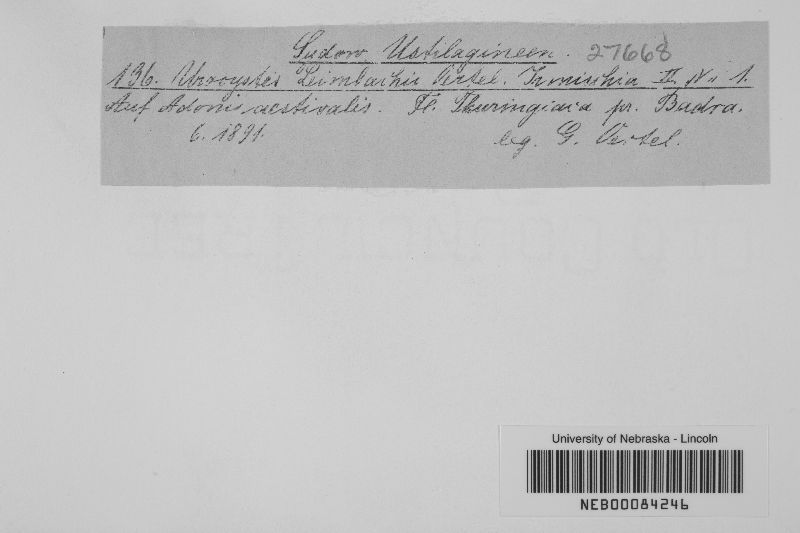 Sydow Ustilagineen. 27668
136. Urocystis Leimbachii Oertel. Irmischia II Nr. 1.
Auf Adonis aestivalis. Fl. Thuringiaca pr. Badra.
6. 1891. leg. G. Oertel.
University of Nebraska - Lincoln
NEB00084246